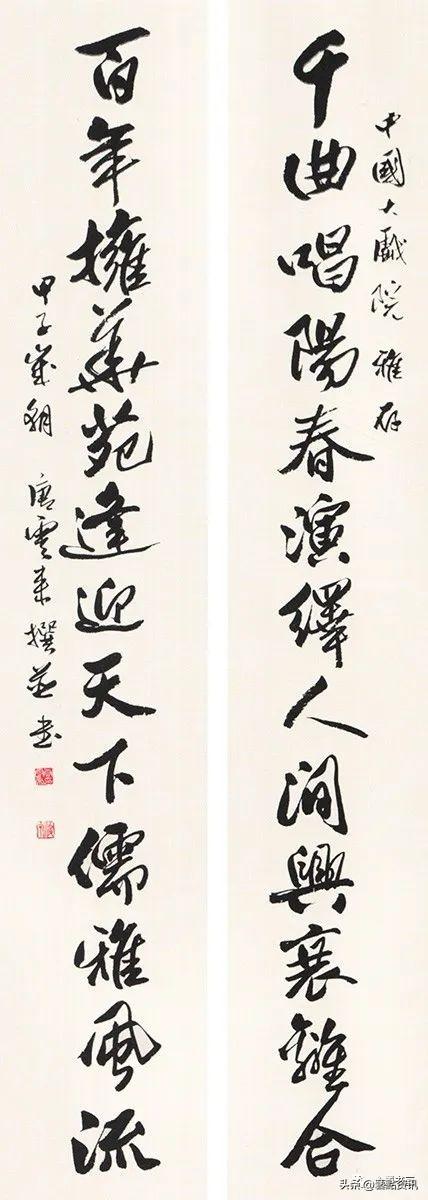 中國大戲院 雅存
千曲唱陽春演繹人間興衰離合
百年擁華苑逢迎天下儒雅風流
甲子歲朝 唐雲來撰並書
头条 @藝點资讯